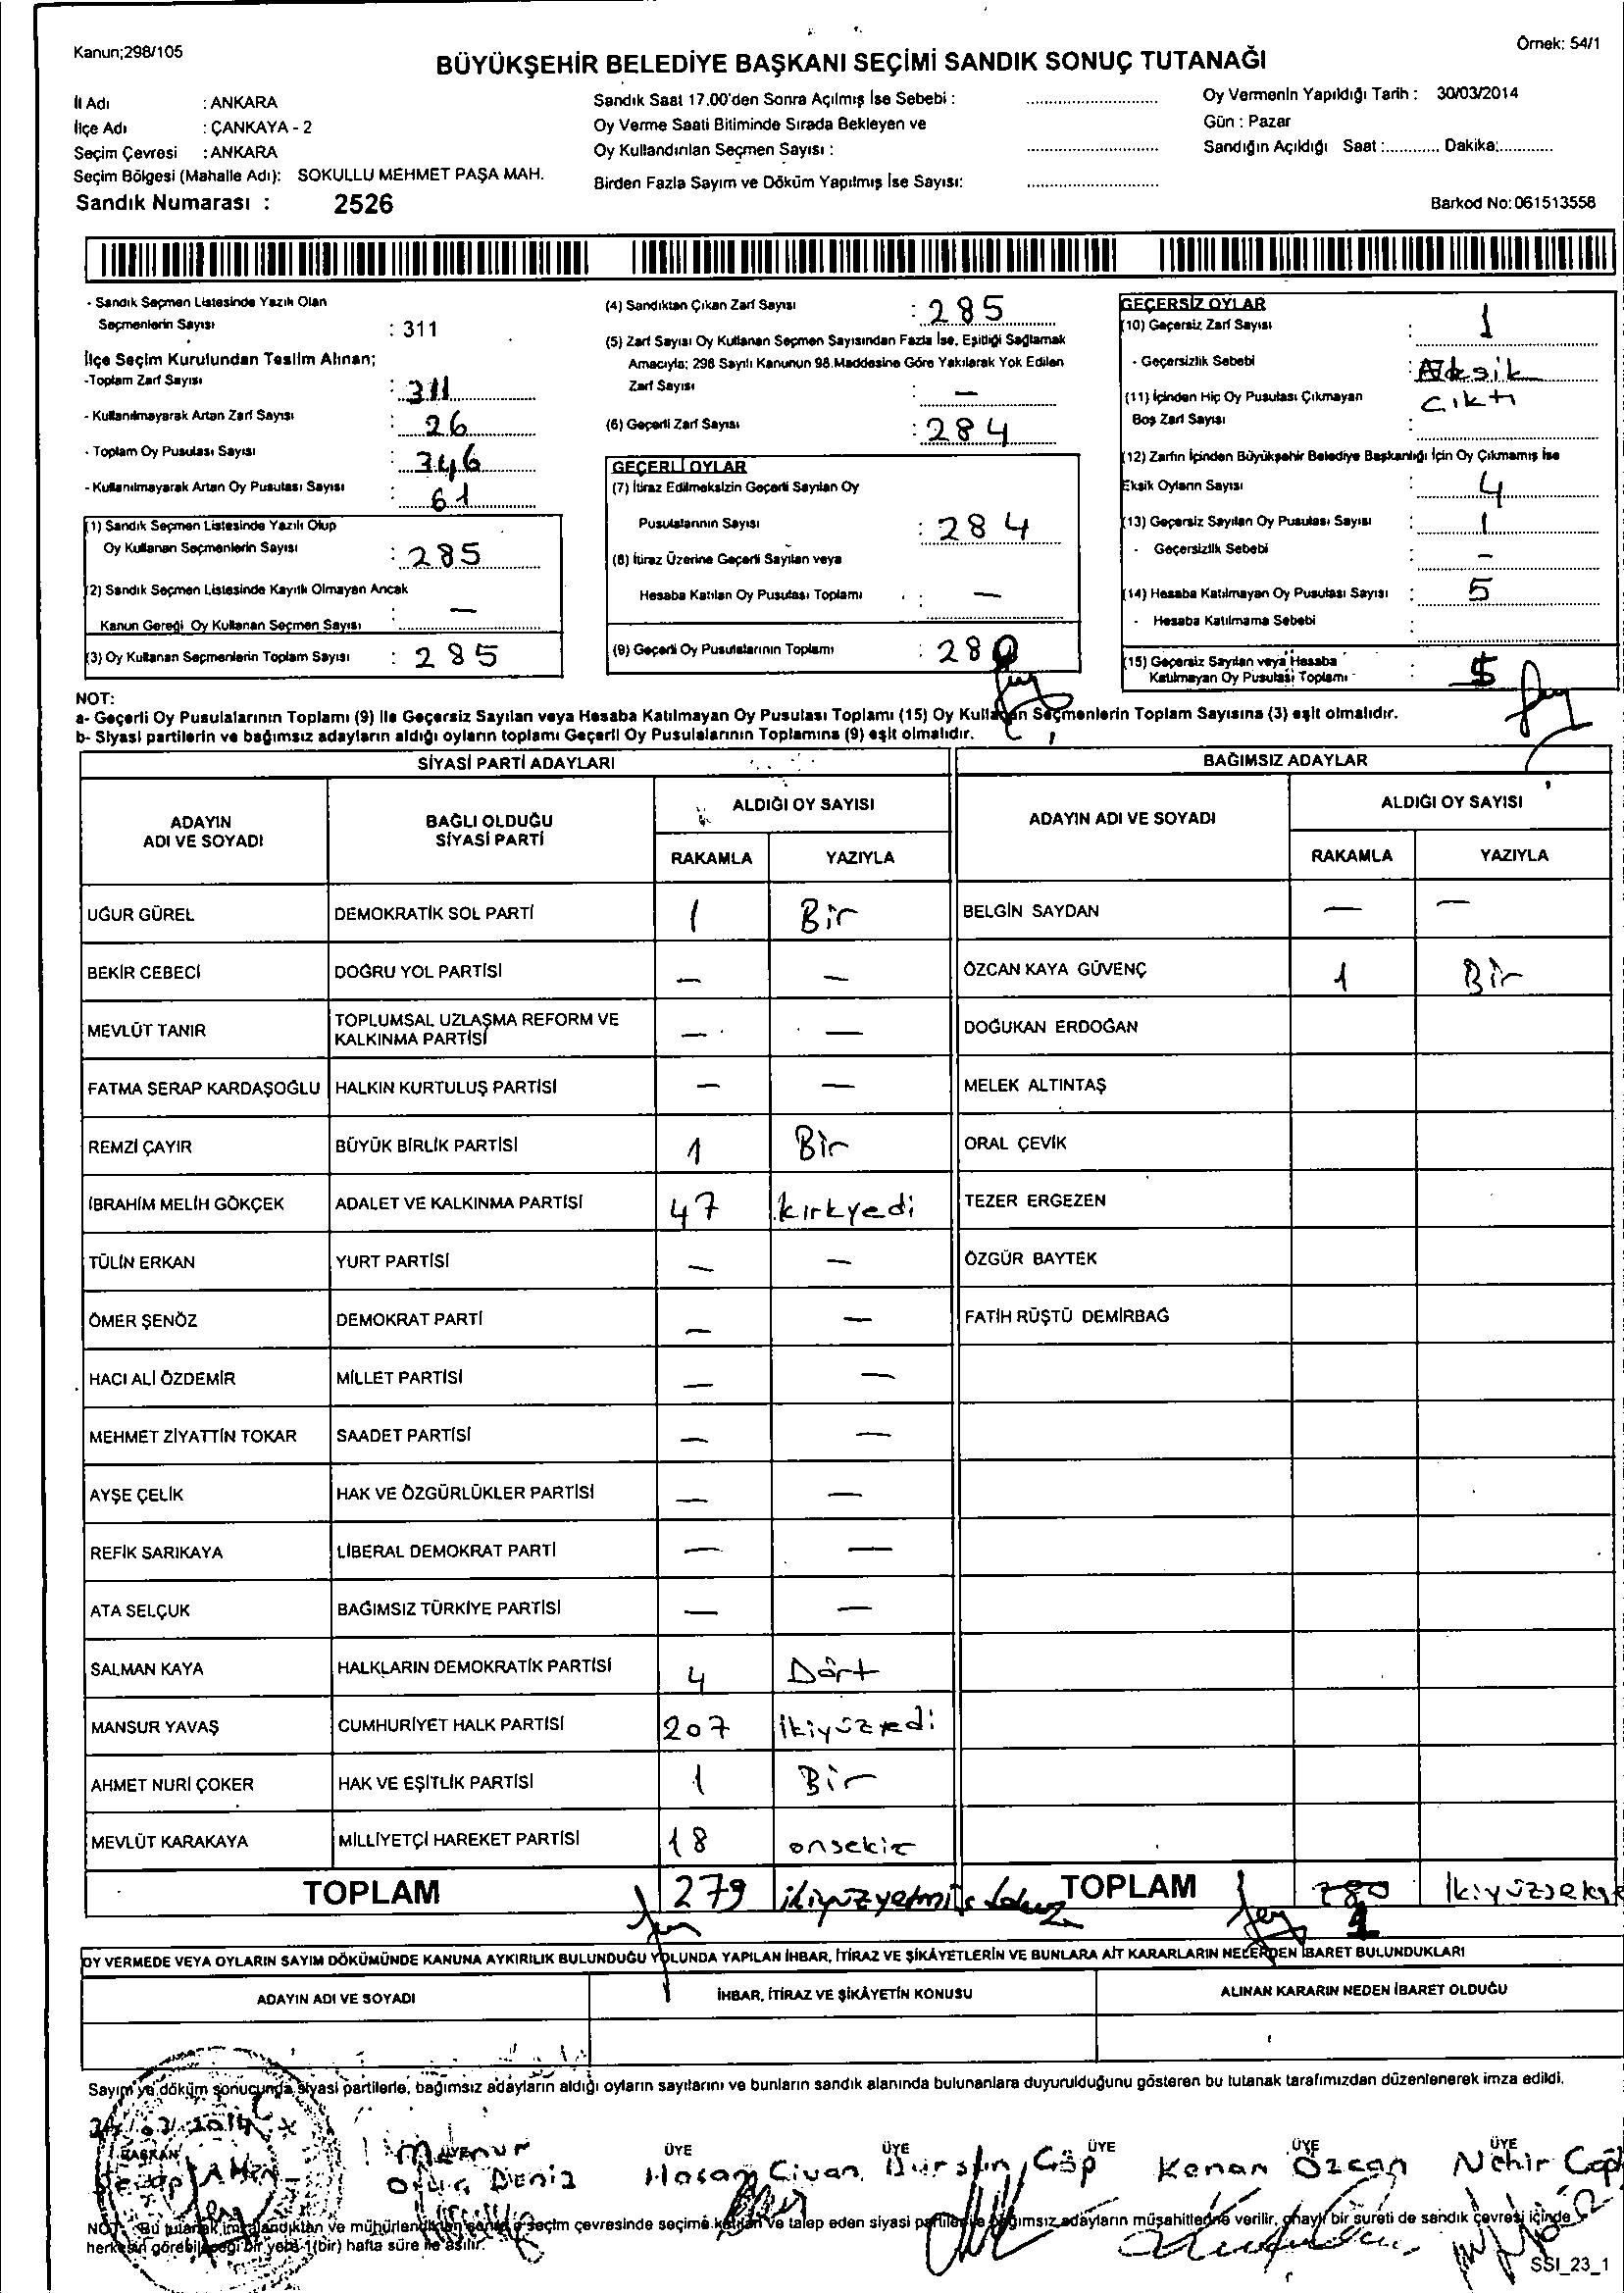 Kanun;298/105
Örnek: 54/1
BÜYÜKŞEHİR BELEDİYE BAŞKANI SEÇİMİ SANDIK SONUÇ TUTANAĞI
İl Adı : ANKARA
İlçe Adı : ÇANKAYA - 2
Seçim Çevresi : ANKARA
Seçim Bölgesi (Mahalle Adı): SOKULLU MEHMET PAŞA MAH.
Sandık Numarası : 2526
Sandık Saat 17.00'den Sonra Açılmış İse Sebebi :
Oy Verme Saati Bitiminde Sırada Bekleyen ve
Oy Kullandırılan Seçmen Sayısı :
Birden Fazla Sayım ve Döküm Yapılmış İse Sayısı:
Oy Vermenin Yapıldığı Tarih : 30/03/2014
Gün : Pazar
Sandığın Açıldığı Saat :............ Dakika:............
Barkod No: 061513558
- Sandık Seçmen Listesinde Yazılı Olan
Seçmenlerin Sayısı : 311
İlçe Seçim Kurulundan Teslim Alınan;
-Toplam Zarf Sayısı : 311
- Kullanılmayarak Artan Zarf Sayısı : 26
- Toplam Oy Pusulası Sayısı : 346
- Kullanılmayarak Artan Oy Pusulası Sayısı : 61
(1) Sandık Seçmen Listesinde Yazılı Olup
Oy Kullanan Seçmenlerin Sayısı : 285
(2) Sandık Seçmen Listesinde Kayıtlı Olmayan Ancak
Kanun Gereği Oy Kullanan Seçmen Sayısı : —
(3) Oy Kullanan Seçmenlerin Toplam Sayısı : 285
(4) Sandıktan Çıkan Zarf Sayısı : 285
(5) Zarf Sayısı Oy Kullanan Seçmen Sayısından Fazla İse, Eşitliği Sağlamak
Amacıyla; 298 Sayılı Kanunun 98.Maddesine Göre Yakılarak Yok Edilen
Zarf Sayısı : —
(6) Geçerli Zarf Sayısı : 284
GEÇERLİ OYLAR
(7) İtiraz Edilmeksizin Geçerli Sayılan Oy
Pusulalarının Sayısı : 284
(8) İtiraz Üzerine Geçerli Sayılan veya
Hesaba Katılan Oy Pusulası Toplamı : —
(9) Geçerli Oy Pusulalarının Toplamı : 280
GEÇERSİZ OYLAR
(10) Geçersiz Zarf Sayısı : 1
- Geçersizlik Sebebi : Eksik
(11) İçinden Hiç Oy Pusulası Çıkmayan Çıktı
Boş Zarf Sayısı :
(12) Zarfın İçinden Büyükşehir Belediye Başkanlığı İçin Oy Çıkmamış İse
Eksik Oyların Sayısı : 4
(13) Geçersiz Sayılan Oy Pusulası Sayısı : 1
- Geçersizlik Sebebi : —
(14) Hesaba Katılmayan Oy Pusulası Sayısı : 5
- Hesaba Katılmama Sebebi :
(15) Geçersiz Sayılan veya Hesaba
Katılmayan Oy Pusulası Toplamı :
NOT:
a- Geçerli Oy Pusulalarının Toplamı (9) İle Geçersiz Sayılan veya Hesaba Katılmayan Oy Pusulası Toplamı (15) Oy Kullanan Seçmenlerin Toplam Sayısına (3) eşit olmalıdır.
b- Siyasi partilerin ve bağımsız adayların aldığı oyların toplamı Geçerli Oy Pusulalarının Toplamına (9) eşit olmalıdır.
SİYASİ PARTİ ADAYLARI
ADAYIN ADI VE SOYADI BAĞLI OLDUĞU SİYASİ PARTİ ALDIĞI OY SAYISI
RAKAMLA YAZIYLA
UĞUR GÜREL DEMOKRATİK SOL PARTİ 1 Bir
BEKİR CEBECİ DOĞRU YOL PARTİSİ — —
MEVLÜT TANIR TOPLUMSAL UZLAŞMA REFORM VE KALKINMA PARTİSİ — —
FATMA SERAP KARDAŞOĞLU HALKIN KURTULUŞ PARTİSİ — —
REMZİ ÇAYIR BÜYÜK BİRLİK PARTİSİ 1 Bir
İBRAHİM MELİH GÖKÇEK ADALET VE KALKINMA PARTİSİ 47 kırkyedi
TÜLİN ERKAN YURT PARTİSİ — —
ÖMER ŞENÖZ DEMOKRAT PARTİ — —
HACI ALİ ÖZDEMİR MİLLET PARTİSİ — —
MEHMET ZİYATTİN TOKAR SAADET PARTİSİ — —
AYŞE ÇELİK HAK VE ÖZGÜRLÜKLER PARTİSİ — —
REFİK SARIKAYA LİBERAL DEMOKRAT PARTİ — —
ATA SELÇUK BAĞIMSIZ TÜRKİYE PARTİSİ — —
SALMAN KAYA HALKLARIN DEMOKRATİK PARTİSİ 4 Dört
MANSUR YAVAŞ CUMHURİYET HALK PARTİSİ 207 İkiyüzyedi
AHMET NURİ ÇOKER HAK VE EŞİTLİK PARTİSİ 1 Bir
MEVLÜT KARAKAYA MİLLİYETÇİ HAREKET PARTİSİ 18 onsekiz
TOPLAM 279 ikiyüzyetmiş dokuz
BAĞIMSIZ ADAYLAR
ADAYIN ADI VE SOYADI ALDIĞI OY SAYISI
RAKAMLA YAZIYLA
BELGİN SAYDAN — —
ÖZCAN KAYA GÜVENÇ 1 Bir
DOĞUKAN ERDOĞAN
MELEK ALTINTAŞ
ORAL ÇEVİK
TEZER ERGEZEN
ÖZGÜR BAYTEK
FATİH RÜŞTÜ DEMİRBAĞ
TOPLAM 280 İkiyüzsekse
1
OY VERMEDE VEYA OYLARIN SAYIM DÖKÜMÜNDE KANUNA AYKIRILIK BULUNDUĞU YOLUNDA YAPILAN İHBAR, İTİRAZ VE ŞİKÂYETLERİN VE BUNLARA AİT KARARLARIN NELERDEN İBARET BULUNDUKLARI
ADAYIN ADI VE SOYADI İHBAR, İTİRAZ VE ŞİKÂYETİN KONUSU ALINAN KARARIN NEDEN İBARET OLDUĞU
Sayım ve döküm sonucunda siyasi partilerle, bağımsız adayların aldığı oyların sayılarını ve bunların sandık alanında bulunanlara duyurulduğunu gösteren bu tutanak tarafımızdan düzenlenerek imza edildi.
BAŞKAN ÜYE ÜYE ÜYE ÜYE ÜYE
Onur Deniz Hasan Civan Dursun Göp Kenan Özcan Nehir
NOT: Bu tutanak imzalandıktan ve mühürlendikten sonra o seçim çevresinde seçime katılan ve talep eden siyasi partiler ile bağımsız adayların müşahitlerine verilir, onaylı bir sureti de sandık çevresi içinde
herkesin görebileceği bir yere 1(bir) hafta süre ile asılır.
SSI_23_1